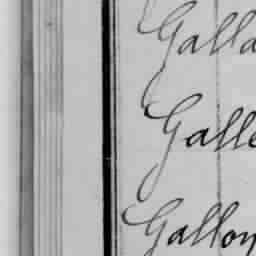 Galla
Galle
Gallon